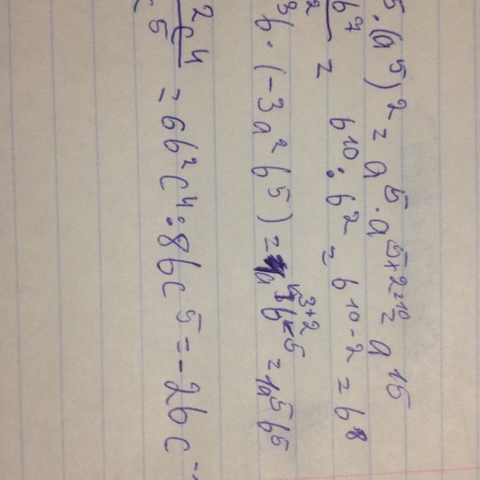 5·(a⁵)² = a⁵·a⁵⁺²⁼¹⁰ = a¹⁵
b⁷/2 = b¹⁰ : b² = b¹⁰⁻² = b⁸
³b·(-3a²b⁵) = = 1a⁵b⁵
²c⁴/c⁵ = 6b²c⁴ : 8bc⁵ = -2bc⁻